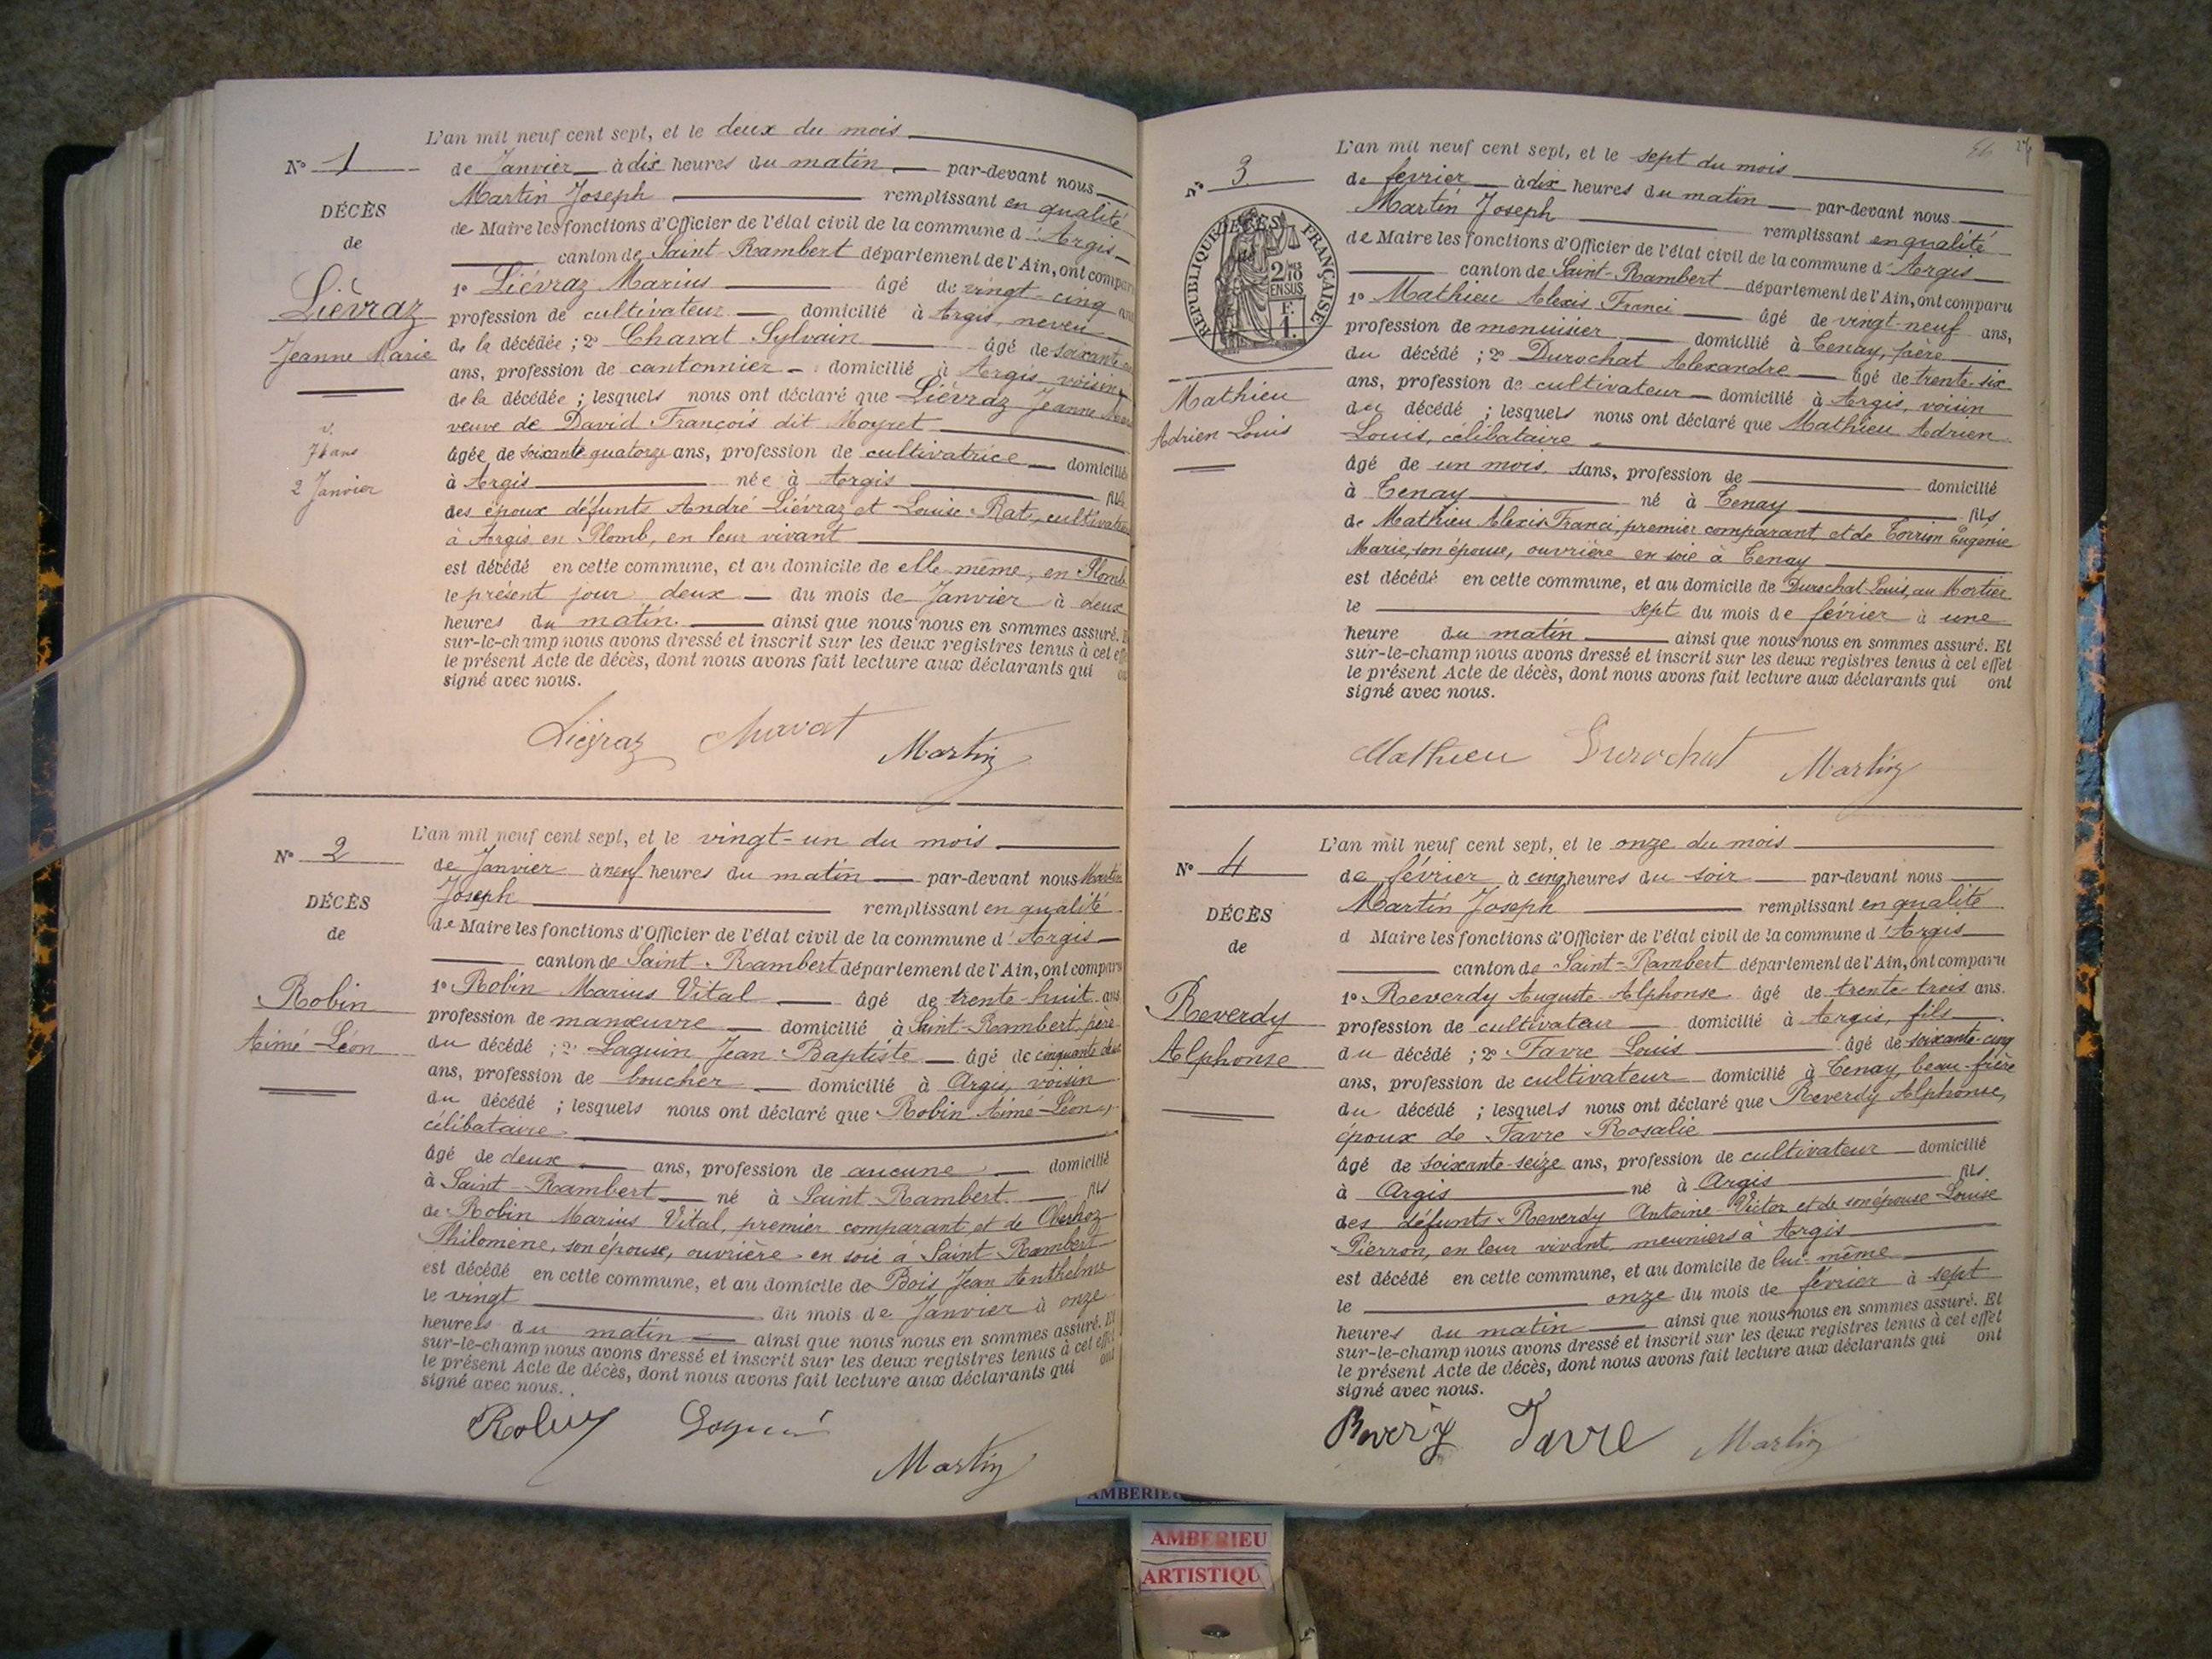 L'an mil neuf cent sept, et le deux du mois
N° 1
de Janvier à dix heures du matin par-devant nous
Martin Joseph remplissant en qualité
DÉCÈS
de Maire les fonctions d'Officier de l'état civil de la commune d'Argis
de
canton de Saint-Rambert département de l'Ain, ont comparu
Liévraz
1° Liévraz Marius âgé de vingt-cinq ans
profession de cultivateur domicilié à Argis, neveu
Jeanne Marie
de la décédée ; 2° Chavat Sylvain âgé de soixante
ans, profession de cantonnier domicilié à Argis, voisin
de la décédée ; lesquels nous ont déclaré que Liévraz Jeanne Marie
veuve de David François dit Moyret
v.
74 ans
âgée de soixante quatorze ans, profession de cultivatrice domicilié
2 Janvier
à Argis née à Argis fille
des époux défunts André Liévraz et Louise Rat, cultivateurs
à Argis en Plomb, en leur vivant
est décédé en cette commune, et au domicile de elle même, en Plomb
le présent jour deux du mois de Janvier à deux
heures du matin. ainsi que nous nous en sommes assuré. Et
sur-le-champ nous avons dressé et inscrit sur les deux registres tenus à cet effet
le présent Acte de décès, dont nous avons fait lecture aux déclarants qui ont
signé avec nous.
Liévraz Chavat Martin
L'an mil neuf cent sept, et le vingt-un du mois
N° 2
de Janvier à neuf heures du matin par-devant nous Martin
Joseph remplissant en qualité
DÉCÈS
de Maire les fonctions d'Officier de l'état civil de la commune d'Argis
de
canton de Saint-Rambert département de l'Ain, ont comparu
Robin
1° Robin Marius Vital âgé de trente-huit ans
profession de manœuvre domicilié à Saint-Rambert, père
Aimé-Léon
du décédé ; 2° Laguin Jean-Baptiste âgé de cinquante deux
ans, profession de boucher domicilié à Argis, voisin
du décédé ; lesquels nous ont déclaré que Robin Aimé-Léon,
célibataire
âgé de deux ans, profession de aucune domicilié
à Saint-Rambert né à Saint-Rambert fils
de Robin Marius Vital, premier comparant et de
Philomène, son épouse, ouvrière en soie à Saint-Rambert
est décédé en cette commune, et au domicile de Bois Jean Anthelme
le vingt du mois de Janvier à onze
heures du matin ainsi que nous nous en sommes assuré. Et
sur-le-champ nous avons dressé et inscrit sur les deux registres tenus à cet effet
le présent Acte de décès, dont nous avons fait lecture aux déclarants qui ont
signé avec nous.
Robin Martin
L'an mil neuf cent sept, et le sept du mois
N° 3
de février à dix heures du matin par-devant nous
Martin Joseph remplissant en qualité
RÉPUBLIQUE FRANÇAISE
DÉCÈS
2/10 EN SUS
F. 1
de Maire les fonctions d'Officier de l'état civil de la commune d'Argis
canton de Saint-Rambert département de l'Ain, ont comparu
1° Mathieu Alexis Franci âgé de vingt-neuf ans,
profession de menuisier domicilié à Tenay, père
du décédé ; 2° Durochat Alexandre âgé de trente-six
Mathieu
ans, profession de cultivateur domicilié à Argis, voisin
Adrien Louis
du décédé ; lesquels nous ont déclaré que Mathieu Adrien
Louis, célibataire
âgé de un mois, sans, profession de domicilié
à Tenay né à Tenay fils
de Mathieu Alexis Franci, premier comparant et de Eugénie
Marie, son épouse, ouvrière en soie à Tenay
est décédé en cette commune, et au domicile de Durochat Louis, au Mortier
le sept du mois de février à une
heure du matin ainsi que nous nous en sommes assuré. Et
sur-le-champ nous avons dressé et inscrit sur les deux registres tenus à cet effet
le présent Acte de décès, dont nous avons fait lecture aux déclarants qui ont
signé avec nous.
Mathieu Durochat Martin
L'an mil neuf cent sept, et le onze du mois
N° 4
de février à cinq heures du soir par-devant nous
Martin Joseph remplissant en qualité
DÉCÈS
d Maire les fonctions d'Officier de l'état civil de la commune d'Argis
de
canton de Saint-Rambert département de l'Ain, ont comparu
Reverdy
1° Reverdy Auguste-Alphonse âgé de trente-trois ans.
profession de cultivateur domicilié à Argis, fils
Alphonse
du décédé ; 2° Favre Louis âgé de soixante-cinq
ans, profession de cultivateur domicilié à Tenay, beau-frère
du décédé ; lesquels nous ont déclaré que Reverdy Alphonse,
époux de Favre Rosalie
âgé de soixante-seize ans, profession de cultivateur domicilié
à Argis né à Argis fils
des défunts Reverdy Antoine-Victor et de son épouse Louise
Pierron, en leur vivant, meuniers à Argis
est décédé en cette commune, et au domicile de lui-même
le onze du mois de février à sept
heures du matin ainsi que nous nous en sommes assuré. Et
sur-le-champ nous avons dressé et inscrit sur les deux registres tenus à cet effet
le présent Acte de décès, dont nous avons fait lecture aux déclarants qui ont
signé avec nous.
Favre Martin
AMBERIEU
AMBERIEU
ARTISTIQU